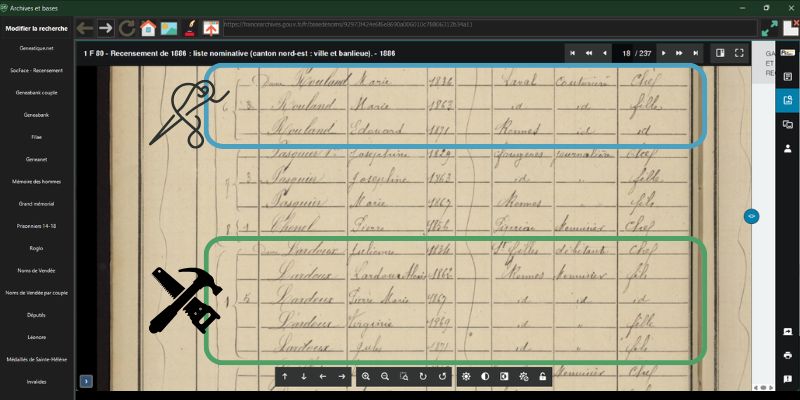 Archives et bases
Modifier la recherche
Geneatique.net
SocFace - Recensement
Geneabank couple
Geneabank
Filae
Geneanet
Mémoire des hommes
Grand mémorial
Prisonniers 14-18
Roglo
Noms de Vendée
Noms de Vendée par couple
Députés
Léonore
Médaillés de Sainte-Hélène
Invalides
1 F 80 - Recensement de 1886 : liste nominative (canton nord-est : ville et banlieue). - 1886
18 / 237
GA
ET
RE
Rouland Marie 1836 Laval Couturière Chef
6 3 Rouland Marie 1863 id id fille
Rouland Edouard 1871 Rennes id id
Pasquier Joséphine 1829 Fougères journalière chef
7 3 Pasquier Joséphine 1863 id " fille
Pasquier Marie 1867 Rennes " fille
8 1 Pierre 1856 Menuisier Chef
Lardoux Julienne 1834 St Gilles débitante Chef
Lardoux Lardoux Alexis 1862 Rennes Menuisier fils
5 Lardoux Pierre Marie 1867 id id id
Lardoux Virginie 1969 id " fille
Lardoux Jules 1871 id " fils
Menuisier